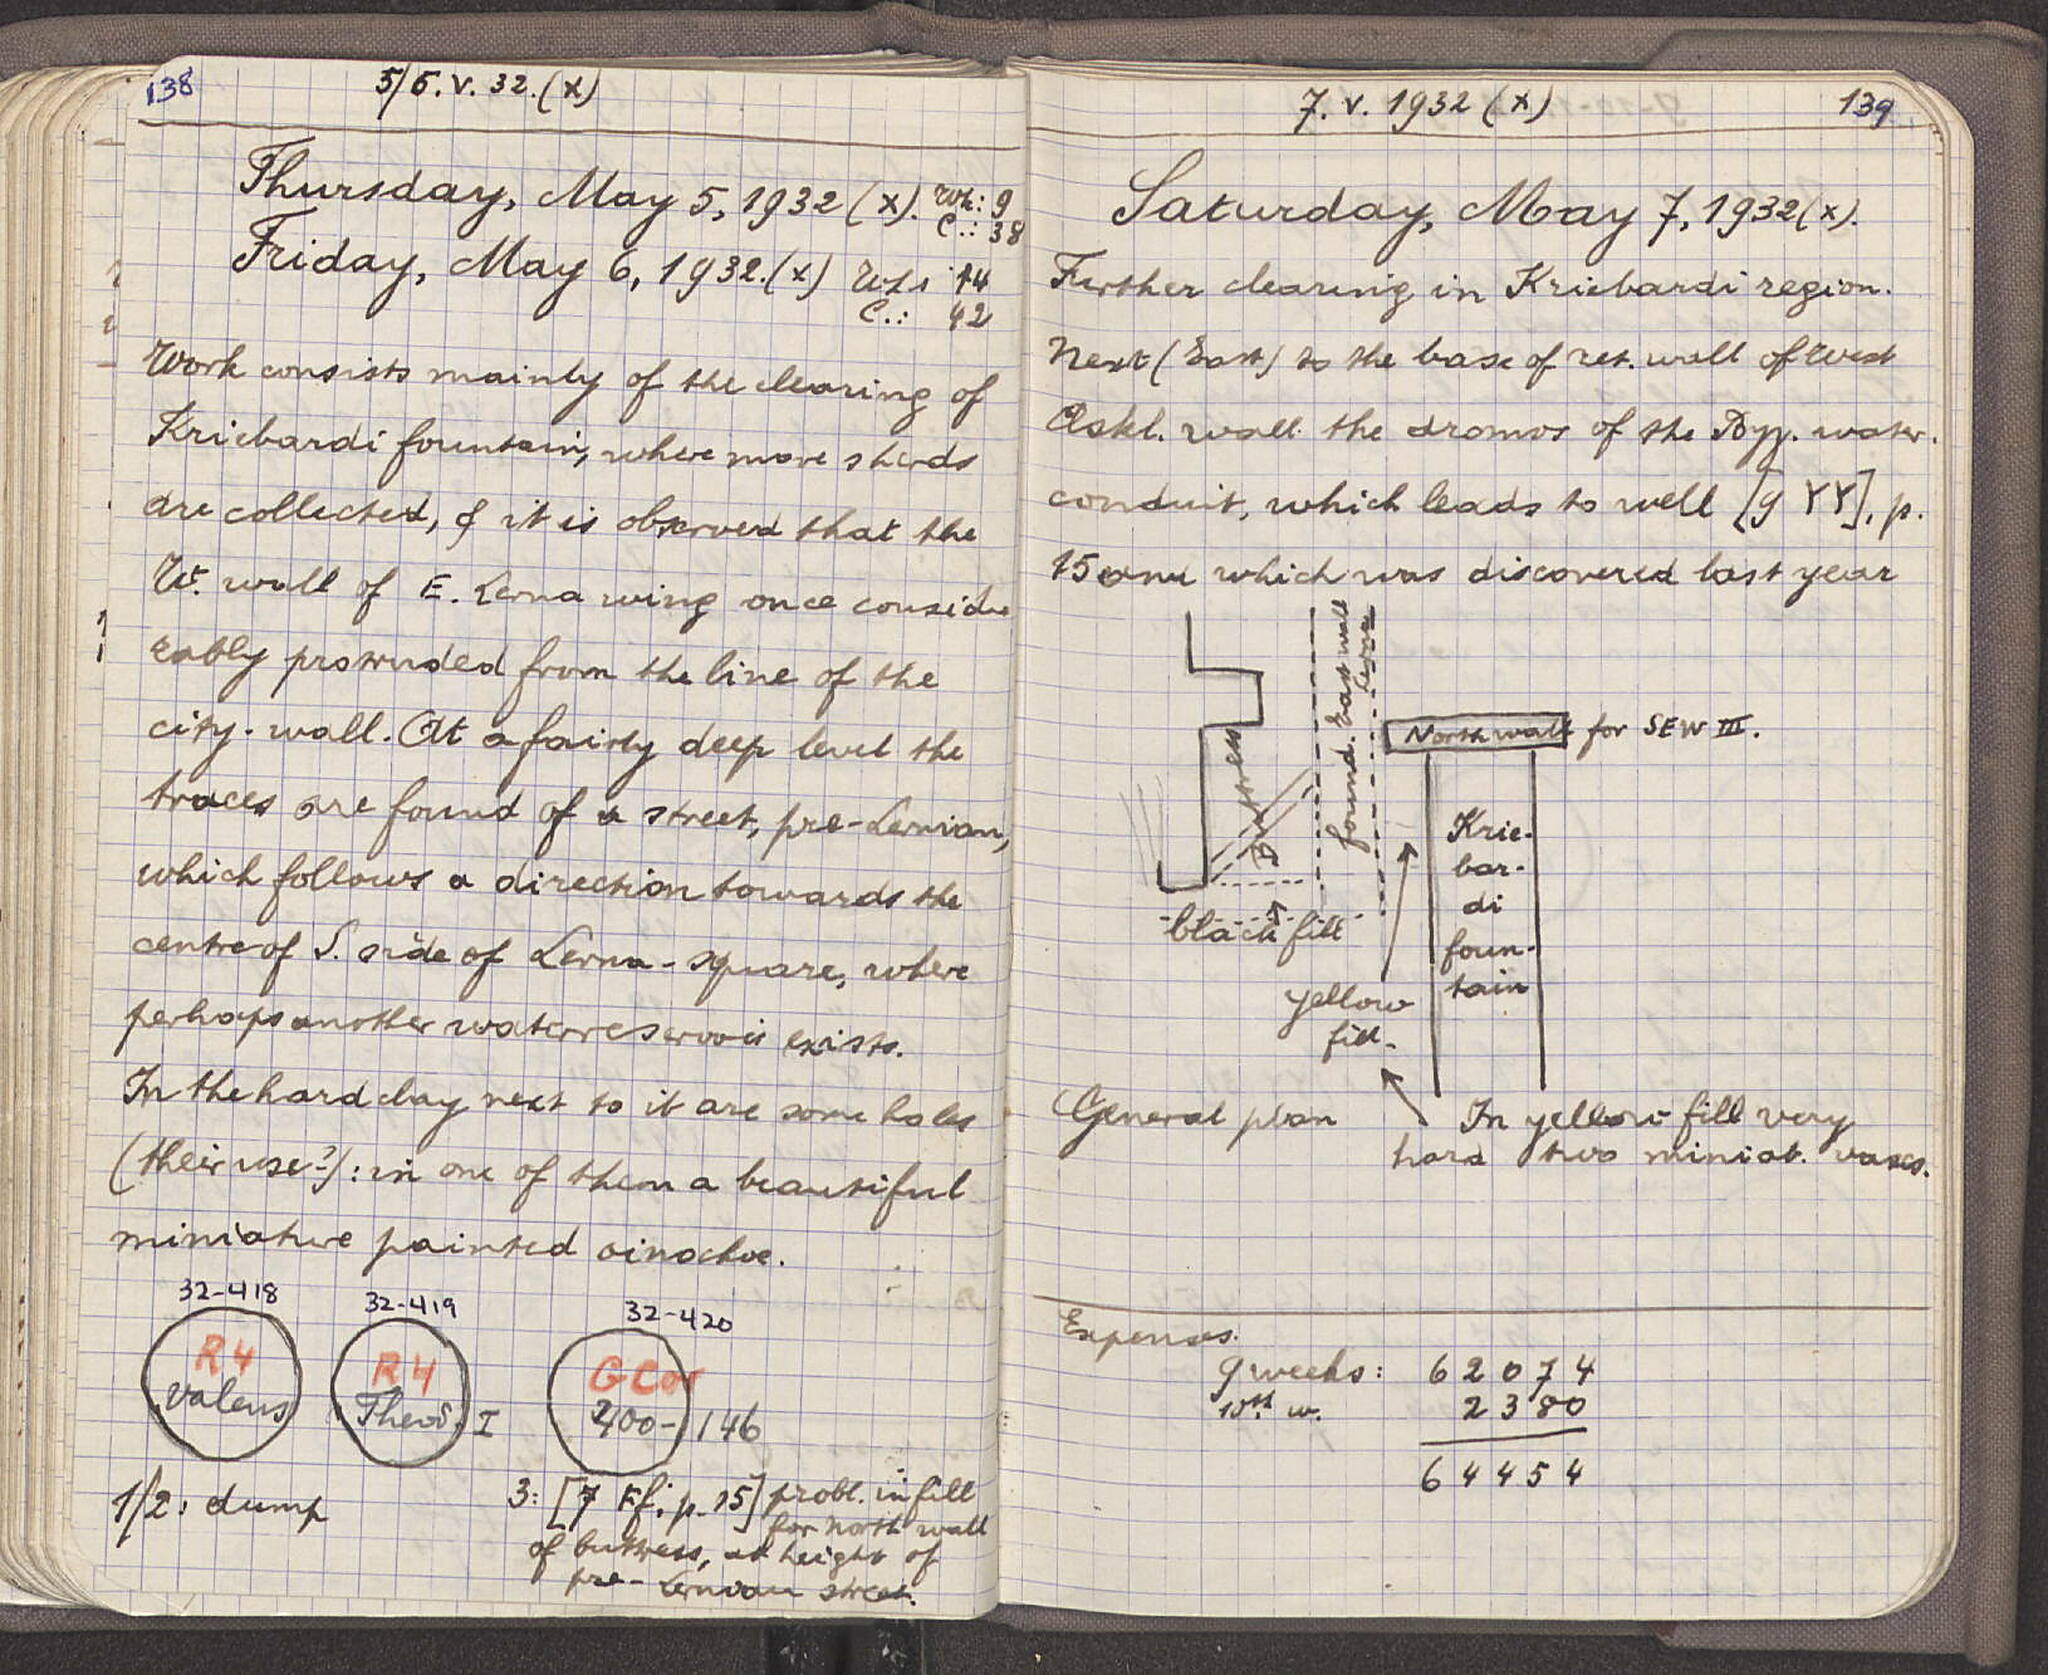 138
5/6. V. 32. (X)
Thursday, May 5, 1932 (X). Wk: 9
C.: 38
Friday, May 6, 1932. (X) Wk: 14
C.: 42
Work consists mainly of the clearing of
Kriebardi fountain, where more sherds
are collected, & it is observed that the
W. wall of E. Lerna wing once conside-
rably protruded from the line of the
city-wall. At a fairly deep level the
traces are found of a street, pre-Lernian,
which follows a direction towards the
centre of S. side of Lerna-square, where
perhaps another waterreservoir exists.
In the hard clay next to it are some holes
(their use?): in one of them a beautiful
miniature painted oinochoe.
32-418 32-419 32-420
R4 Valens
R4 Theod. I
G Cor 400-146
1/2: dump
3: [7 Ef; p. 15] probl. in fill
for north wall
of buttress, at height of
pre-Lernian street.
7. V. 1932 (X) 139
Saturday, May 7, 1932 (X).
Further clearing in Kriebardi region.
Next (East) to the base of ret. wall of West
Askl. wall the dromos of the Byz. water-
conduit, which leads to well [9 YY], p.
15 and which was discovered last year
Buttress
found. East wall
Lerna
North wall for SEW III.
Krie-
bar-
di
foun-
tain
black fill
yellow
fill.
General plan
In yellow fill very
hard two miniat. vases.
Expenses.
9 weeks: 62074
10th w. 2380
64454